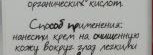 органических кислот.
Способ применения:
нанести крем на очищенную
кожу вокруг глаз легкими